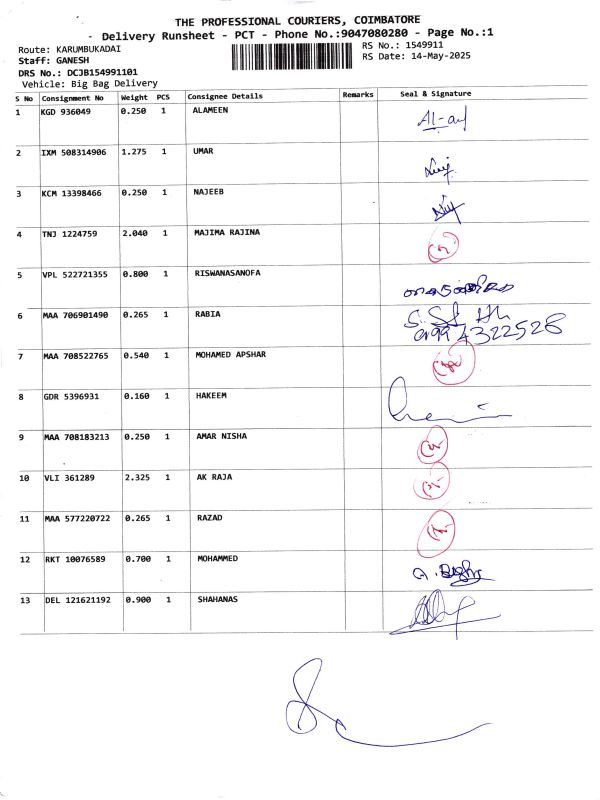 THE PROFESSIONAL COURIERS, COIMBATORE
- Delivery Runsheet - PCT - Phone No.:9047080280 - Page No.:1
Route: KARUMBUKADAI
RS No.: 1549911
Staff: GANESH
RS Date: 14-May-2025
DRS No.: DCJB154991101
Vehicle: Big Bag Delivery
S No Consignment No Weight PCS Consignee Details Remarks Seal & Signature
1 KGD 936049 0.250 1 ALAMEEN
2 IXM 508314906 1.275 1 UMAR
3 KCM 13398466 0.250 1 NAJEEB
4 TNJ 1224759 2.040 1 MAJIMA RAJINA
5 VPL 522721355 0.800 1 RISWANASANOFA
6 MAA 706901490 0.265 1 RABIA
7 MAA 708522765 0.540 1 MOHAMED APSHAR
8 GDR 5396931 0.160 1 HAKEEM
9 MAA 708183213 0.250 1 AMAR NISHA
10 VLI 361289 2.325 1 AK RAJA
11 MAA 577220722 0.265 1 RAZAD
12 RKT 10076589 0.700 1 MOHAMMED
13 DEL 121621192 0.900 1 SHAHANAS